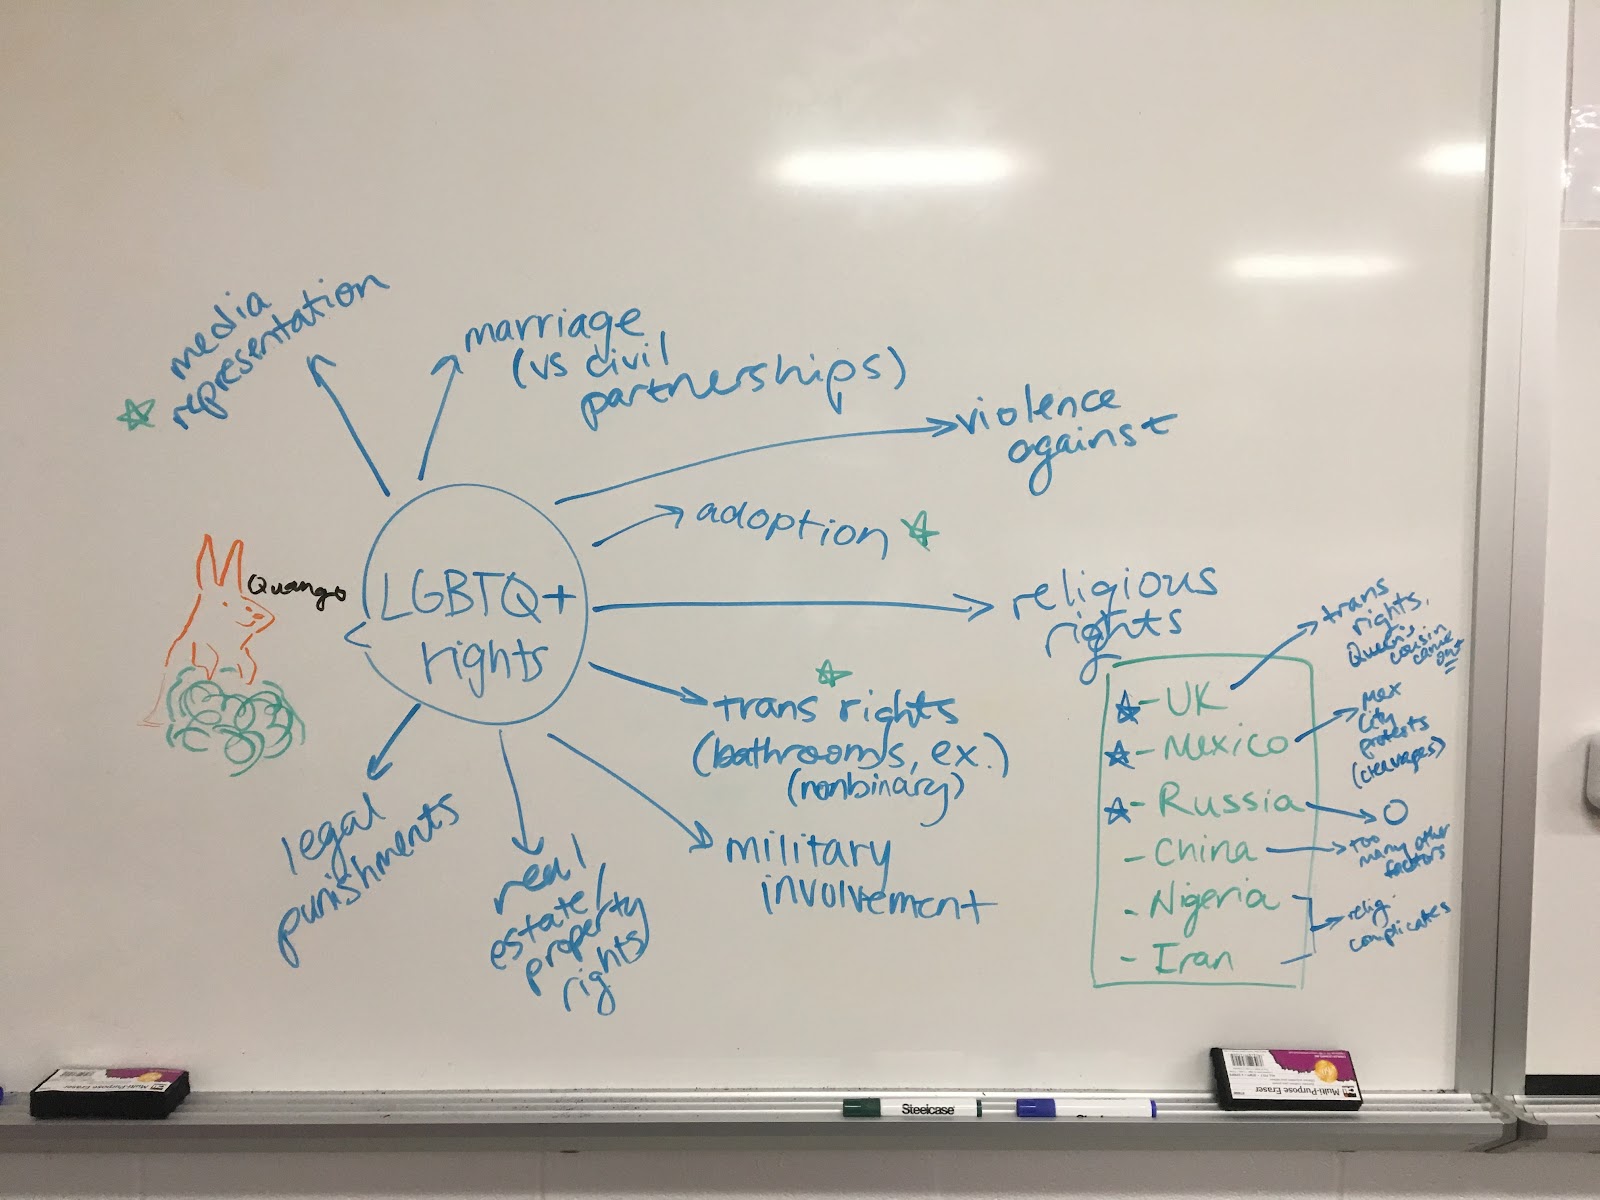 media
representation
marriage
(vs civil
partnerships)
violence
against
adoption
religious
rights
Quango
LGBTQ+
rights
trans rights
(bathrooms, ex.)
(nonbinary)
military
involvement
real
estate/
property
rights
legal
punishments
- UK
trans
rights,
Queen's
cousin
came
out
- Mexico
Mex
City
protests
(cleavages)
- Russia
O
- China
too
many other
factors
- Nigeria
- Iran
relig.
complicates
Multi-Purpose Eraser
Steelcase
Multi-Purpose Eraser